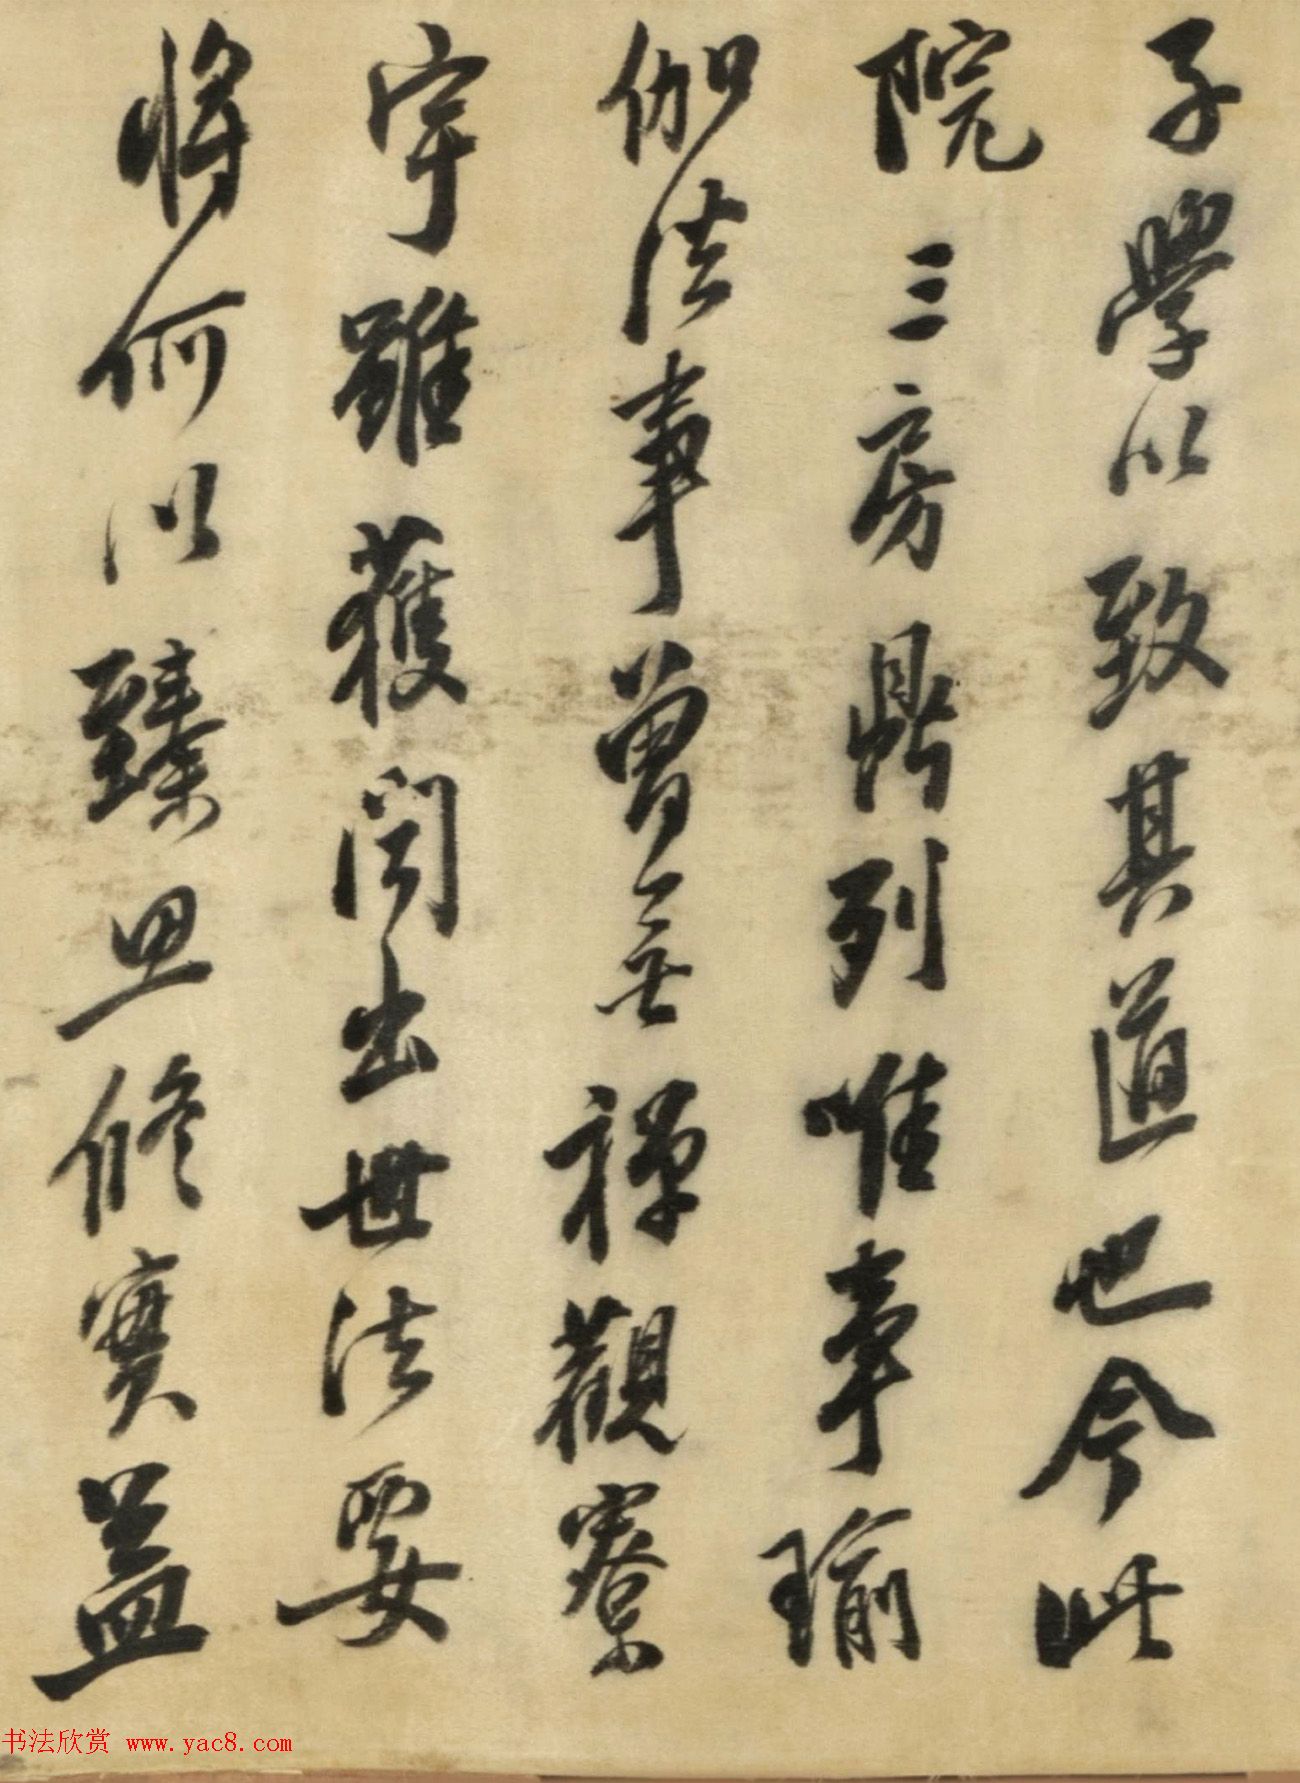 子學以致其道也今此
院三房鼎列唯事瑜
伽法事曾無禪觀寮
宇雖獲闻出世法要
將何以臻思修實益
书法欣赏 www.yac8.com